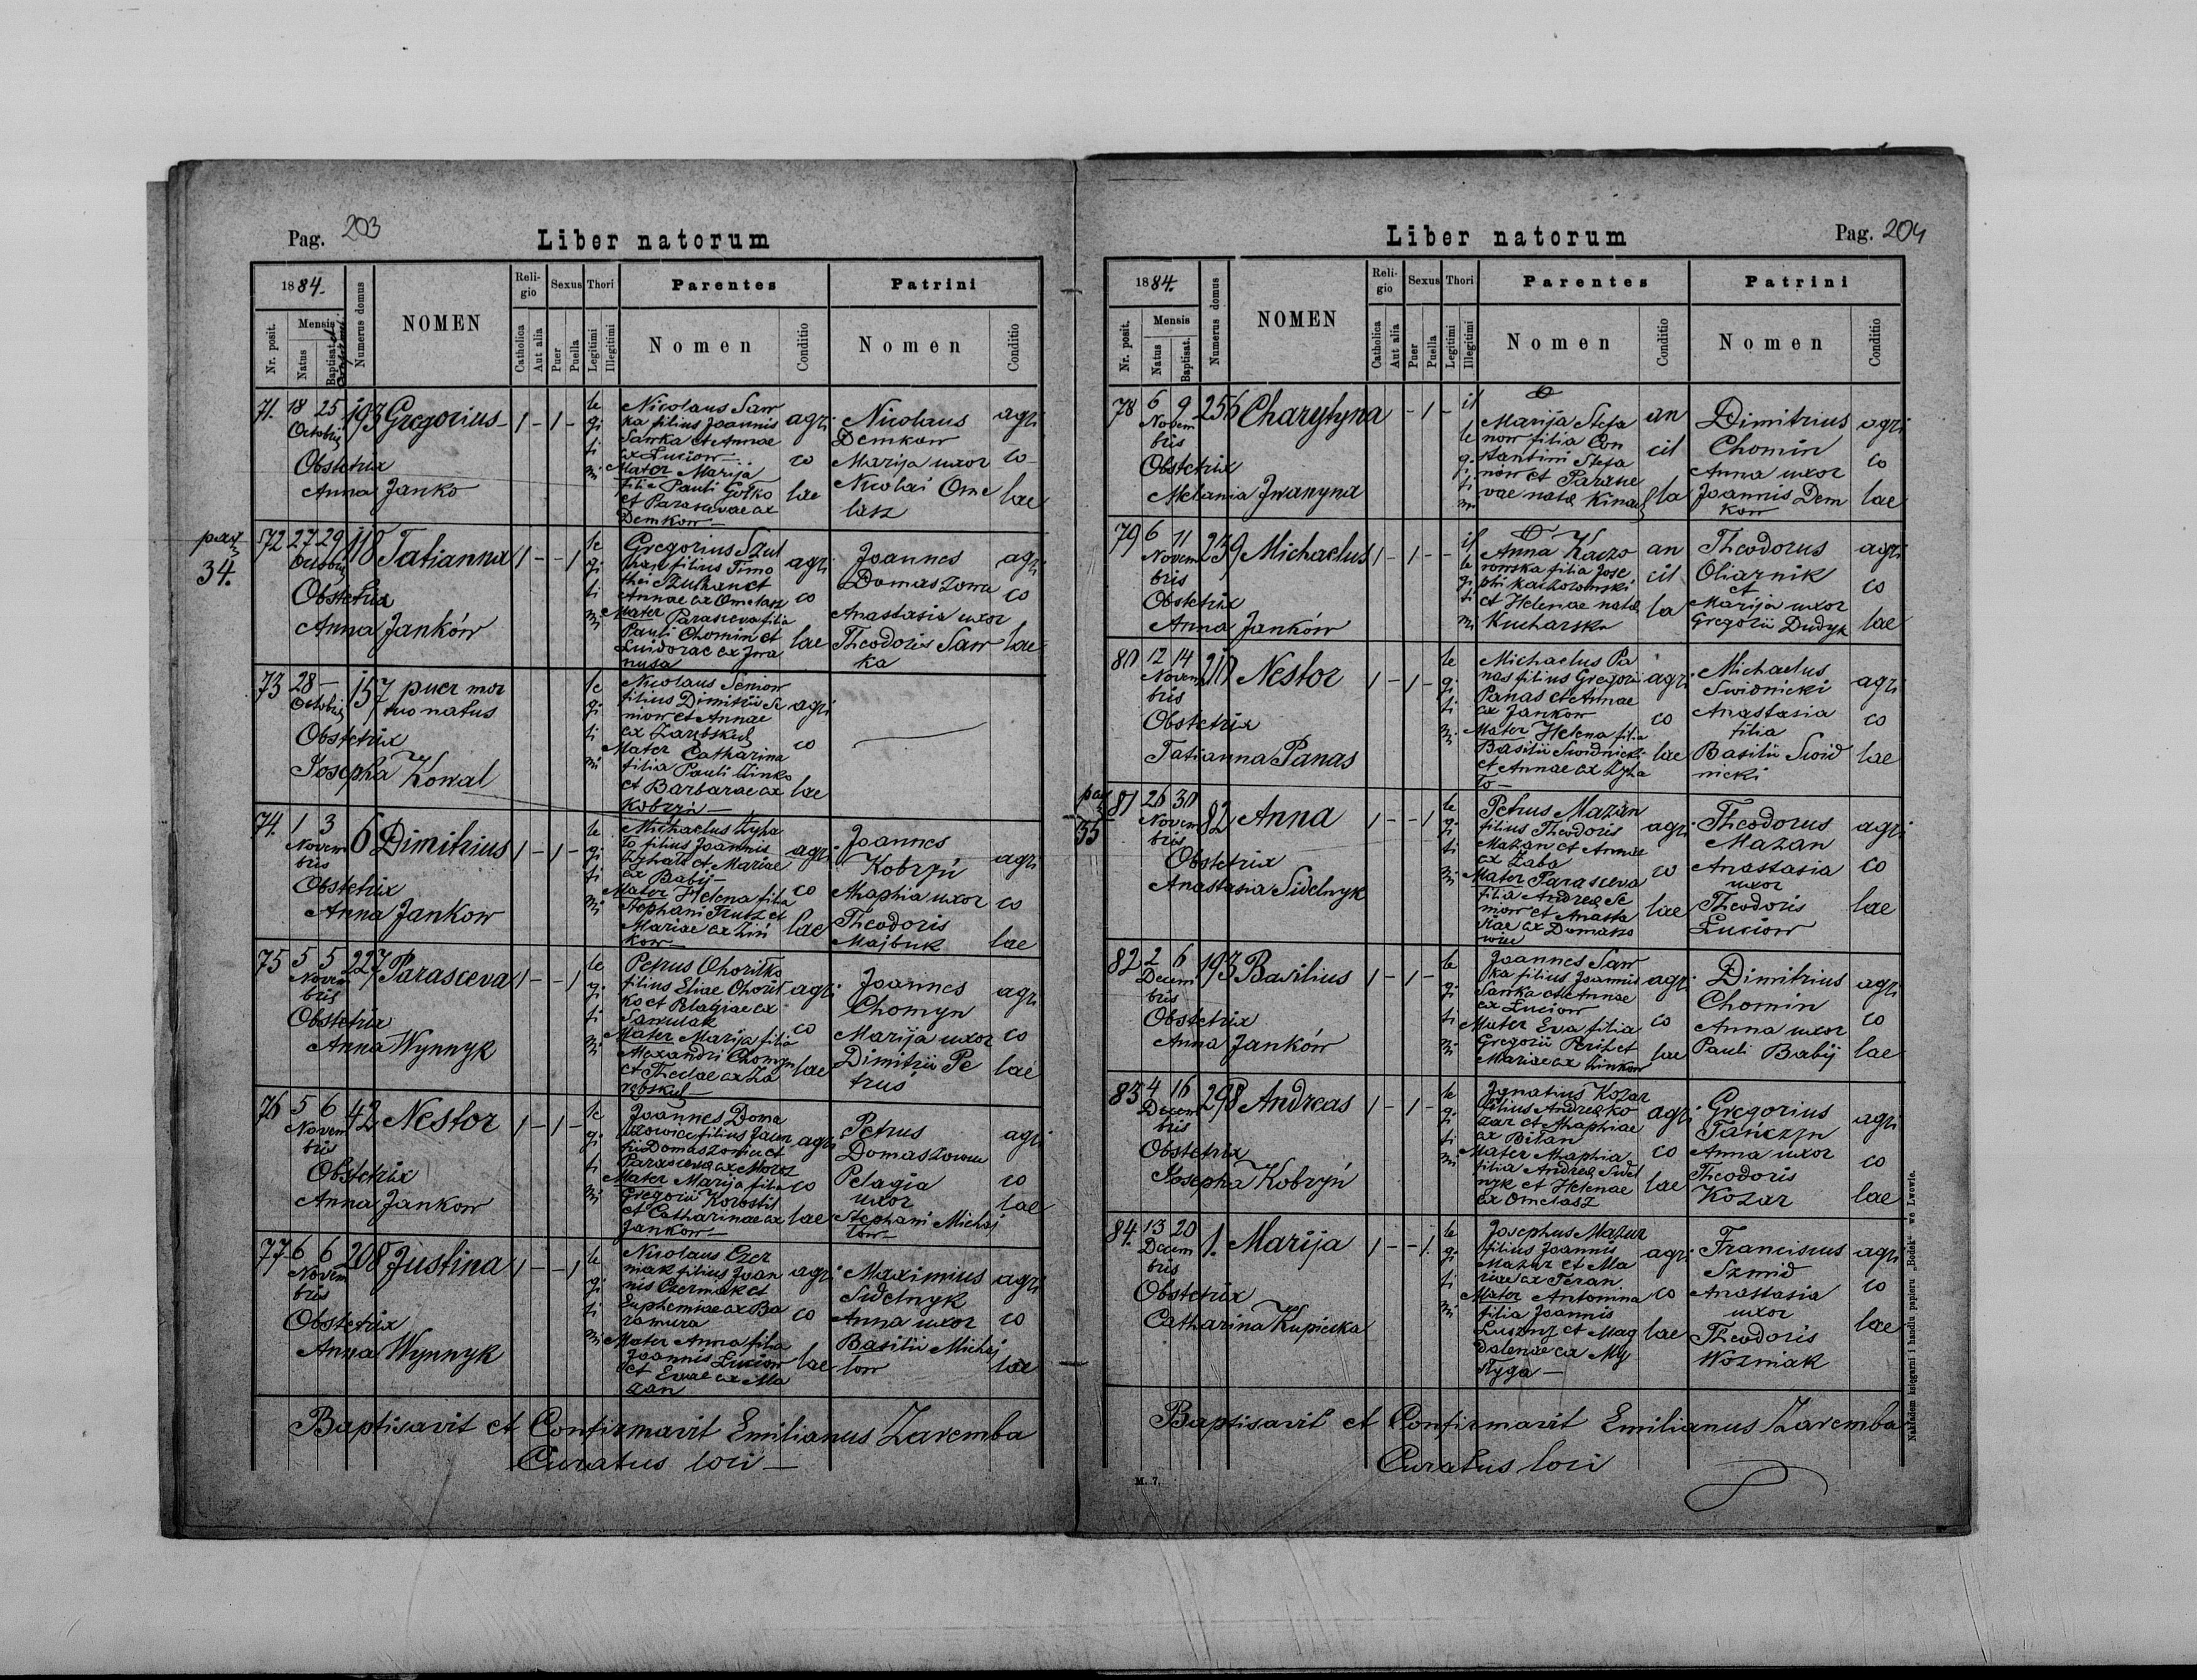 Pag. 203
Liber natorum
1884.
Nr. posit.
Mensis
Natus
Baptisat.
Numerus domus
NOMEN
Religio
Catholica
Aut alia
Sexus
Puer
Puella
Thori
Legitimi
Illegitimi
Parentes
Nomen
Conditio
Patrini
Nomen
Conditio
71. 18 25 193 Gregorius 1 - 1 -
Octobris
Obstetrix
Anna Janko
legitimi
Nicolaus Saw
ka filius Joannis
Sawka et Annae
ex Luciow
Mater Marija
filia Pauli Gołko
et Parascevae ex
Demkow
agri
co
lae
Nicolaus
Demkow
Marija uxor
Nicolai Ome
lasz
agri
co
lae
pag
34.
72 27 29 118 Tatianna 1 - - 1
Octobris
Obstetrix
Anna Janków
legitimi
Gregorius Szul
han filius Timo
thei Szulhan et
Annae ex Omelasz
Mater Parasceva filia
Pauli Chomin et
ex Iwa
nusa
agri
co
lae
Joannes
Domaszowa
Anastasia uxor
Theodoris Saw
ka
agri
co
lae
73 28 - 157 puer mor
tuo natus
Octobris
Obstetrix
Josepha Kowal
legitimi
Nicolaus Seniow
filius Dimitrii Se
niow et Annae
ex Zarębskul
Mater Catharina
filia Pauli Zinko
et Barbarae ex
Kobryń
agri
co
lae
74. 1 3 6 Dimitrius 1 - 1 -
Novem
bris
Obstetrix
Anna Jankow
legitimi
Michaelus Zyha
to filius Joannis
Zyhato et Mariae
ex Babij
Mater Helena filia
Stephani Trusz et
Mariae ex Zin
kow
agri
co
lae
Joannes
Kobryń
Maphia uxor
Theodoris
Majbuk
agri
co
lae
75 5 5 227 Parasceva 1 - - 1
Novem
bris
Obstetrix
Anna Wynnyk
legitimi
Petrus Choritko
filius Eliae Chorit
ko et Pelagiae ex
Sawulak
Mater Marija filia
Alexandri Chomyn
et Theclae ex Za
rębskul
agri
co
lae
Joannes
Chomyn
Marija uxor
Dimitrii Pe
trus
agri
co
lae
76 5 6 42 Nestor 1 - 1 -
Novem
bris
Obstetrix
Anna Jankow
legitimi
Joannes Doma
filius
Domaszowicz et
Parascevae ex Moroz
Mater Marija filia
Gregorii Korostil
et Catharinae ex
Jankow
agri
co
lae
Petrus
Domaszowicz
Pelagia
uxor
Stephani Michaj
low
agri
co
lae
77 6 6 208 Justina 1 - - 1
Novem
bris
Obstetrix
Anna Wynnyk
legitimi
Nicolaus Czer
niak filius Joan
nis Czerniak et
Euphemiae ex Ba
ramura
Mater Anna filia
Joannis Luciow
et Evae ex Ma
zan
agri
co
lae
Maximius
Sidelnyk
Anna uxor
Basilii Michaj
low
agri
co
lae
Baptisavit et Confirmavit Emilianus Zaremba
Curatus loci
Liber natorum
Pag. 204
1884.
Nr. posit.
Mensis
Natus
Baptisat.
Numerus domus
NOMEN
Religio
Catholica
Aut alia
Sexus
Puer
Puella
Thori
Legitimi
Illegitimi
Parentes
Nomen
Conditio
Patrini
Nomen
Conditio
78 6 9 256 Charytyna - 1 -
Novem
bris
Obstetrix
Melania Iwanyna
illegitimi
Marija Stefa
now filia Con
stantini Stefa
now et Parasce
vae natae Kinach
an
cil
la
Dimitrius
Chomin
Anna uxor
Joannis Dem
kow
agri
co
lae
79 6 11 239 Michaelus 1 - 1 - -
Novem
bris
Obstetrix
Anna Janków
illegitimi
Anna Kaczo
rowska filia Jose
phi Kaczorowski
et Helenae natae
Kucharska
an
cil
la
Theodorus
Oliarnik
et
Marija uxor
Gregorii Dudyk
agri
co
lae
80 12 14 210 Nestor 1 - 1 -
Novem
bris
Obstetrix
Tatianna Panas
legitimi
Michaelus Pa
nas filius Gregori
Panas et Annae
ex Jankow
Mater Helena filia
Basilii Swidnicki
et Annae ex Zyha
to
agri
co
lae
Michaelus
Swidnicki
Anastasia
filia
Basilii Swid
nicki
agri
co
lae
pag
35
81 26 30 82 Anna 1 - - 1
Novem
bris
Obstetrix
Anastasia Sidelnyk
legitimi
Petrus Mazan
filius Theodoris
Mazan et Annae
ex Zaba
Mater Parasceva
filia Andreae Se
niow et Anasta
siae ex Domaszo
wicz
agri
co
lae
Theodorus
Mazan
Anastasia
uxor
Theodoris
Luciow
agri
co
lae
82 2 6 193 Basilius 1 - 1 -
Decem
bris
Obstetrix
Anna Janków
legitimi
Joannes Saw
ka filius Joannis
Sawka et Annae
ex Luciow
Mater Eva filia
Gregorii Peril et
Mariae ex Zinkow
agri
co
lae
Dimitrius
Chomin
Anna uxor
Pauli Babij
agri
co
lae
83 4 16 298 Andreas 1 - 1 -
Decem
bris
Obstetrix
Josepha Kobryń
legitimi
Ignatius Kozar
filius Andreae Ko
zar et Maphiae
ex Bilan
Mater Maphia
filia Andreae Sidel
nyk et Helenae
ex Omelasz
agri
co
lae
Gregorius
Tańczyn
Anna uxor
Theodoris
Kozar
agri
co
lae
84. 13 20 1. Marija 1 - - 1.
Decem
bris
Obstetrix
Catharina Kupiecka
legitimi
Josephus Mazur
filius Joannis
Mazur et Ma
riae ex Teran
Mater Antonina
filia Joannis
et Mag
dalenae ex My
styga
agri
co
lae
Franciscus
Szmid
Anastasia
uxor
Theodoris
Wozniak
agri
co
lae
Baptisavit et Confirmavit Emilianus Zaremba
Curatus loci
M. 7.
Nakładem księgarni i handlu papieru „Bodek“ we Lwowie.